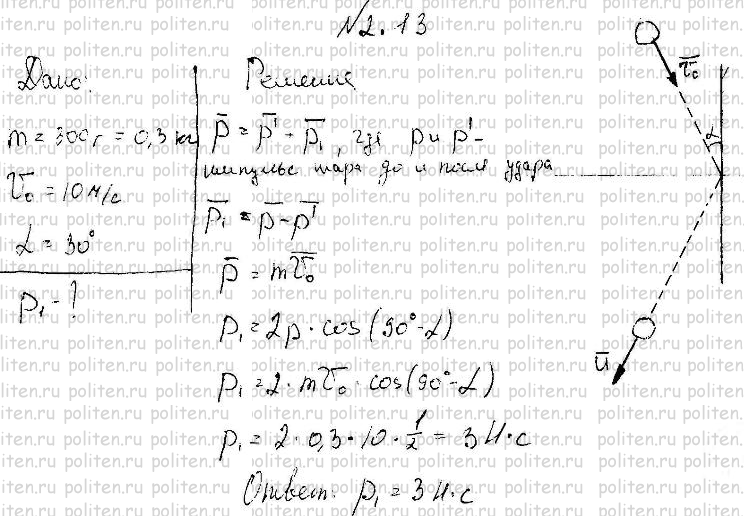 №2.13
Дано:
m = 300г = 0,3 кг
v̅₀ = 10 м/с
α = 30°
p₁ - ?
Решение
p̅ = p̅' - p̅₁, где p и p' -
импульс шара до и после удара
p̅₁ = p̅ - p̅'
p̅ = mv̅₀
p₁ = 2p · cos(90°-α)
p₁ = 2 · mv₀ · cos(90°-α)
p₁ = 2 · 0,3 · 10 · 1/2 = 3 Н·с
Ответ: p₁ = 3 Н·с
v̅₀
α
u̅
politen.ru